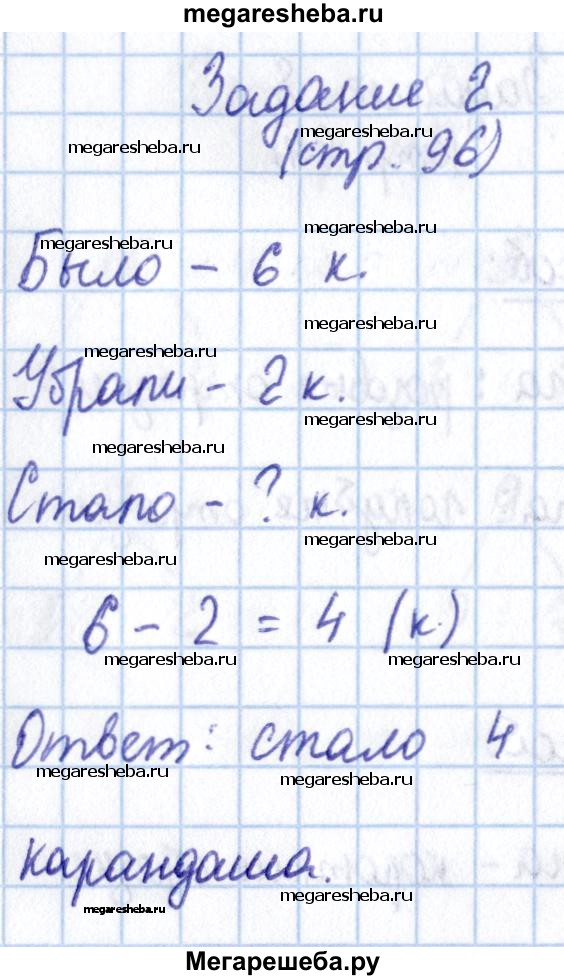 megaresheba.ru
Задание 2
megaresheba.ru
megaresheba.ru
(стр. 96)
megaresheba.ru
megaresheba.ru
Было - 6 к.
megaresheba.ru
megaresheba.ru
Убрали - 2 к.
megaresheba.ru
megaresheba.ru
Стало - ? к.
megaresheba.ru
megaresheba.ru
6 - 2 = 4 (к)
megaresheba.ru megaresheba.ru
Ответ: стало 4
megaresheba.ru
megaresheba.ru
карандаша.
megaresheba.ru
megaresheba.ru
Мегарешеба.ру